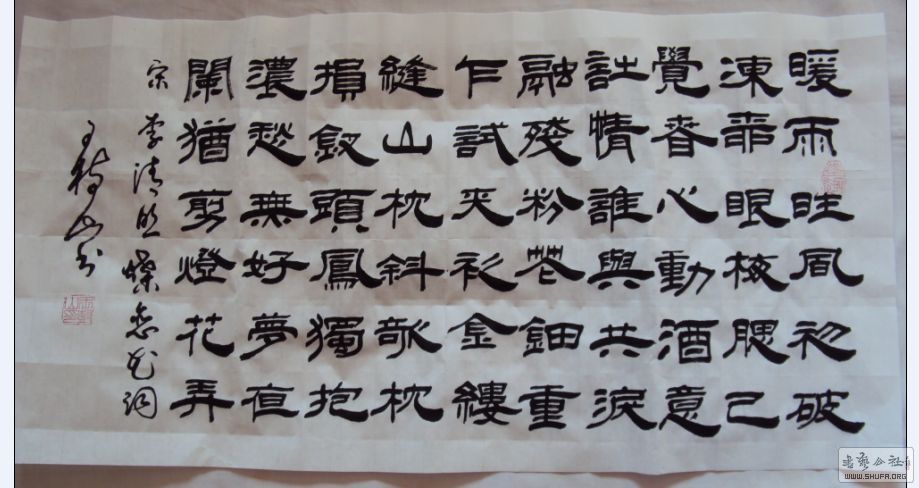 暖雨旺風初破
凍柳眼梅腮已
覺春心動酒意
詩情誰與共淚
融殘粉花鈿重
乍試夾衫金縷
縫山枕斜欹枕
損釵頭鳳獨抱
濃愁無好夢夜
闌猶剪燈花弄
宋李清照蝶恋花词
书艺公社
WWW.SHUFA.ORG